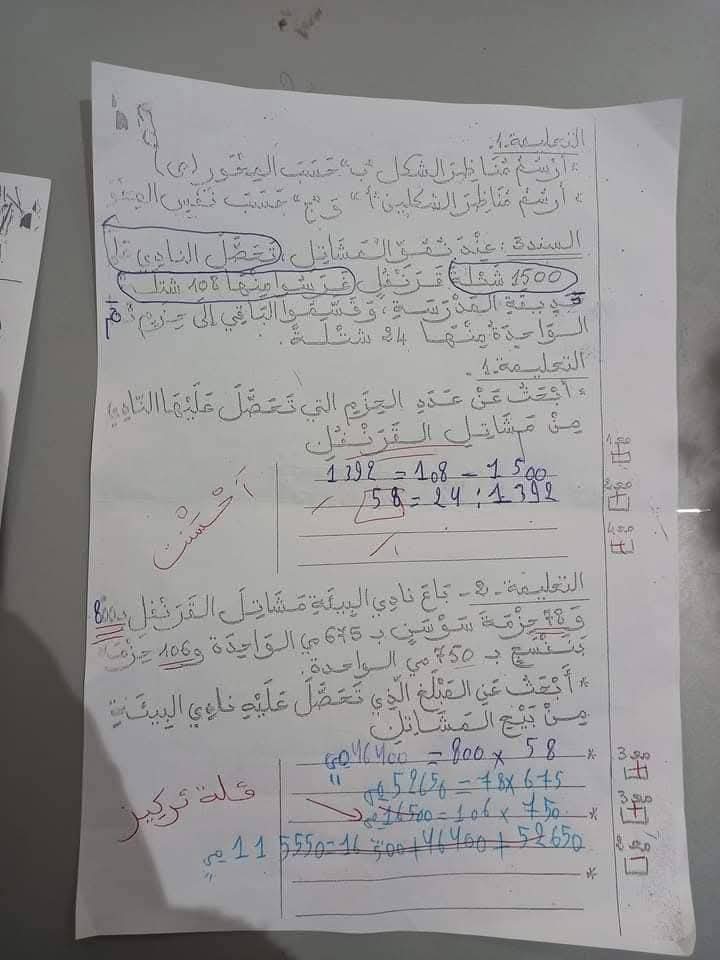 التعليمة.1.
* أَرْسُمُ مُنَاظِرَ الشكل "ب" حَسَبَ المِحْوَرِ (م)
* أَرْسُمُ مُنَاظِرَ الشكلين "أ" و "ج" حَسَبَ نَفْسِ المِحْوَ
السند 3: عِنْدَ تَفَقُّدِ الْمَشَاتِلِ، تَحَصَّلَ النادي على
1500 شَتْلَةَ قَرَنْفُلٍ غَرَسُوا مِنْهَا 108 شتلة
حَدِيقَةِ المَدْرَسَةِ، وَقَسَّمُوا البَاقِي إلَى حِزَمٍ
الوَاحِدَةُ مِنْهَا 24 شَتْلَةً.
التعليمة.1.
* أَبْحَثُ عَنْ عَدَدِ الحِزَمِ التي تَحَصَّلَ عَلَيْهَا النَّادِي
مِنْ مَشَاتِلِ القَرَنْفُلِ
1392 = 108 - 1500
58 = 24 : 1392
أَحْسَنْت
مع1
مع2
مع4
التعليمة - 2 - بَاعَ نادِي البِيئَةِ مَشَاتِلَ القَرَنْفُلِ بـ 800
وَ 78 حِزْمَةَ سَوْسَنٍ بـ 675 مي الوَاحِدَةَ و 106 حِزْمَة
بَنَفْسَجٍ بـ 750 مي الواحدة.
* أَبْحَثُ عَنِ المَبْلَغِ الّذِي تَحَصَّلَ عَلَيْهِ نادِي البِيئَةِ
مِنْ بَيْعِ المَشَاتِلِ
* 58 × 800 = 46400 مي
675 × 78 = 52650 مي
750 × 106 = 16500 مي
52650 + 46400 + 16500 = 115550 مي
*
قلة تركيز
مع3
مع3
مع2